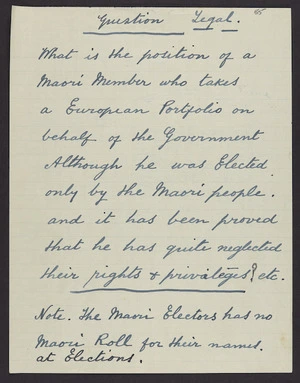 Question Legal.
What is the position of a
Maori Member who takes
a European Portfolio on
behalf of the Government
Although he was Elected
only by the Maori people.
and it has been proved
that he has quite neglected
their rights & privileges? etc.
Note. The Maori Electors has no
Maori Roll for their names.
at Elections.